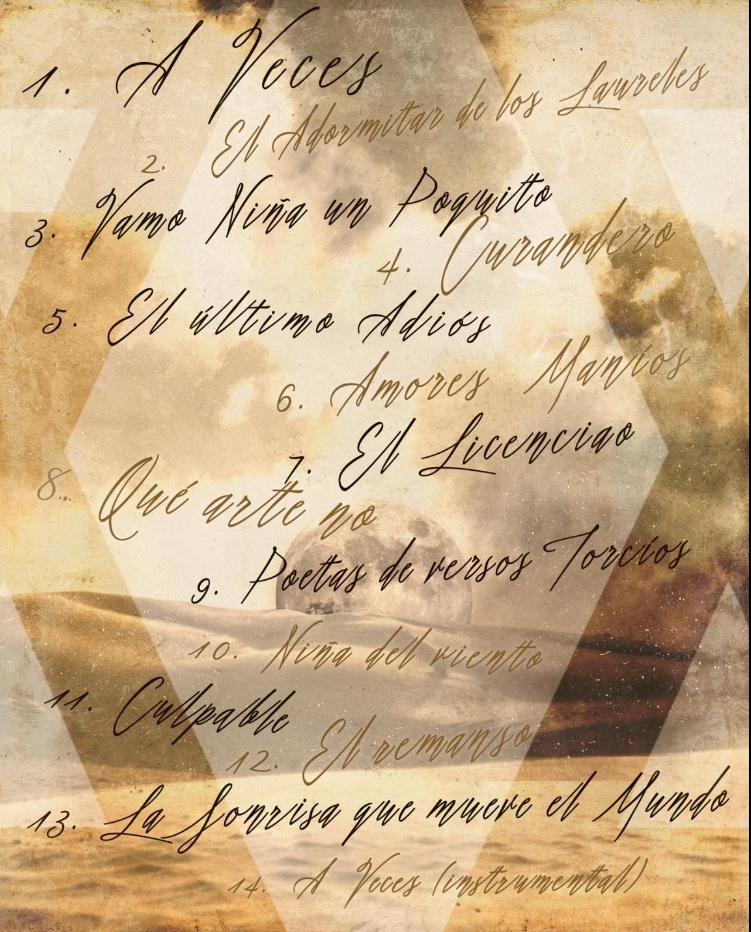 1. A Veces
2. El Adormitar de los Laureles
3. Vamo Niña un Poquito
4. Curandero
5. El último Adiós
6. Amores Maníos
7. El Licenciao
8.. Qué arte no
9. Poetas de versos Torcíos
10. Niña del viento
11. Culpable
12. El remanso
13. La Sonrisa que mueve el Mundo
14. A Veces (instrumental)